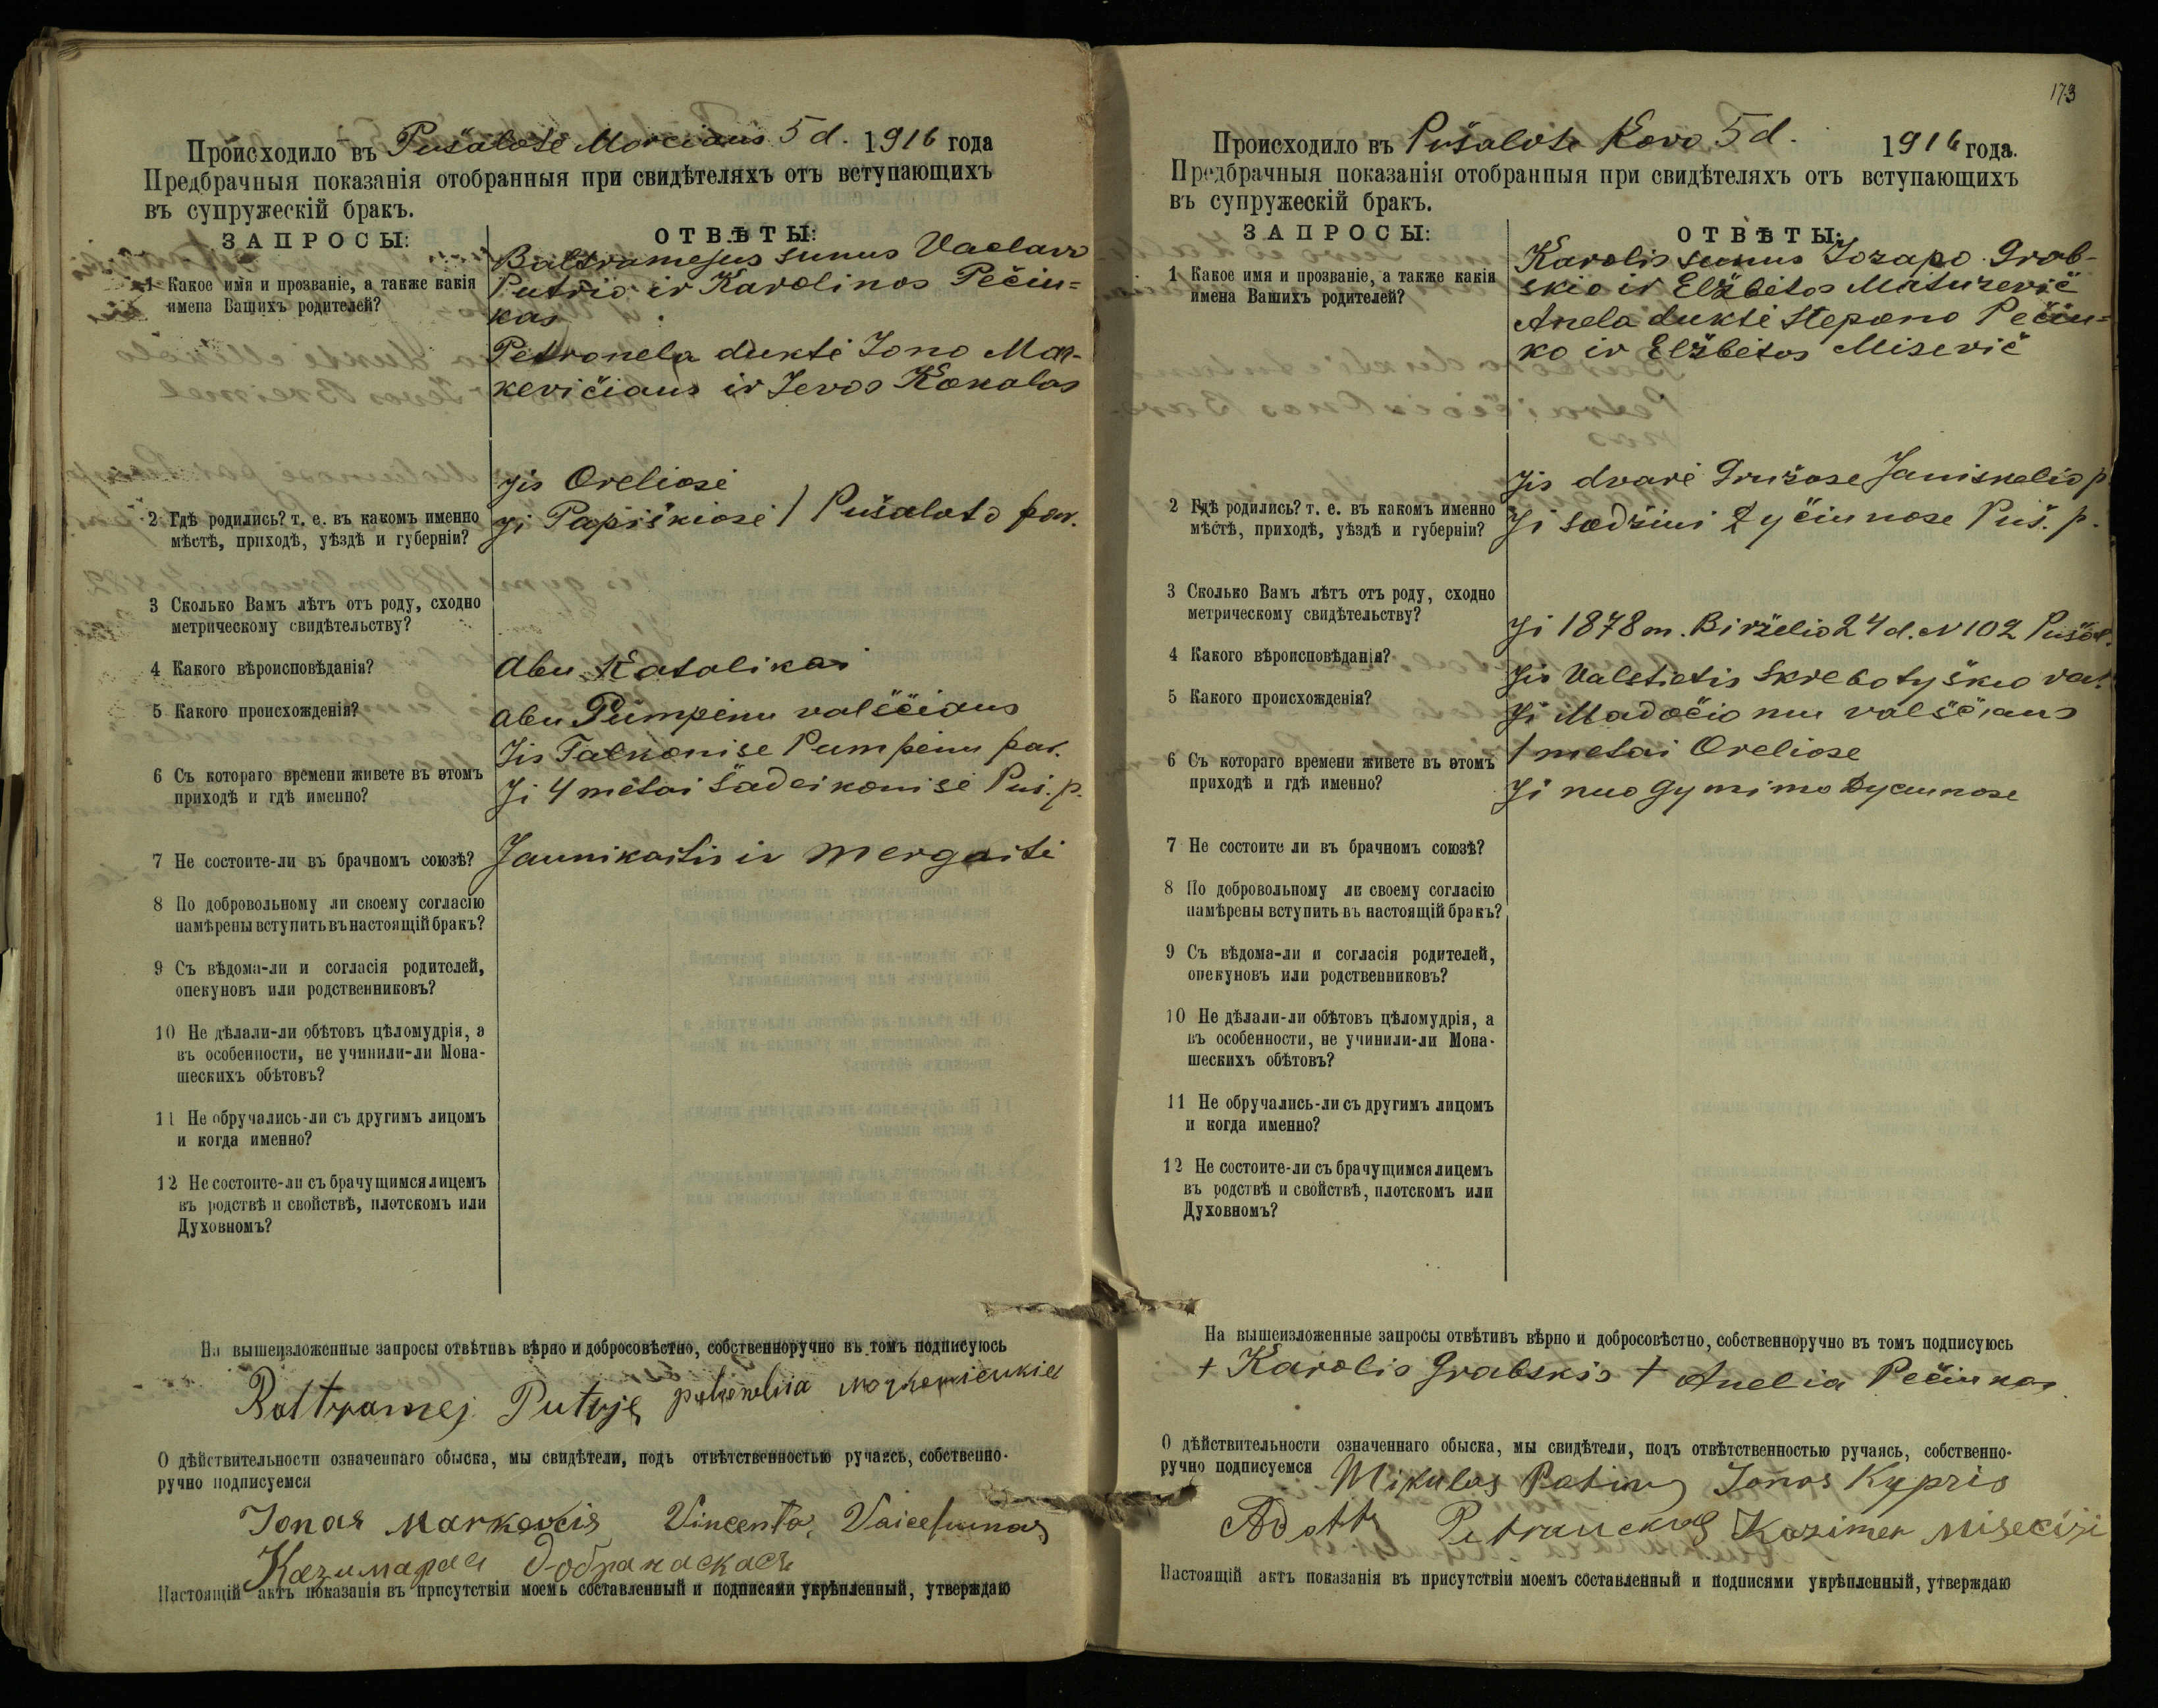 Происходило въ Pušalote Morciaus 5 d. 1916 года
Предбрачныя показанія отобранныя при свидѣтеляхъ отъ вступающихъ
въ супружескій бракъ.
ЗАПРОСЫ: ОТВѢТЫ:
1 Какое имя и прозваніе, а также какія
имена Вашихъ родителей?
Baltramejus sunus Vaclavo
Putrio ir Karolinos Pečiu=
kas
Petronela duktė Jono Mar-
kevičiaus ir Jevos Kakalas
2 Гдѣ родились? т. е. въ какомъ именно
мѣстѣ, приходѣ, уѣздѣ и губерніи?
Jis Oreliosi
Ji Papiškiosi / Pušaloto par.
3 Сколько Вамъ лѣтъ отъ роду, сходно
метрическому свидѣтельству?
4 Какого вѣроисповѣданія?
Abu Katalikai
5 Какого происхожденія?
Abu Pumpėnu valsčiaus
6 Съ котораго времени живете въ этомъ
приходѣ и гдѣ именно?
Jis Talkonise Pumpėnu par.
Ji 4 metai Šadeikonise Puš. p.
7 Не состоите-ли въ брачномъ союзѣ?
Jaunikaitis ir mergaitė
8 По добровольному ли своему согласію
намѣрены вступить въ настоящій бракъ?
9 Съ вѣдома-ли и согласія родителей,
опекуновъ или родственниковъ?
10 Не дѣлали-ли обѣтовъ цѣломудрія, а
въ особенности, не учинили-ли Мона-
шескихъ обѣтовъ?
11 Не обручались-ли съ другимъ лицомъ
и когда именно?
12 Не состоите-ли съ брачущимся лицемъ
въ родствѣ и свойствѣ, плотскомъ или
Духовномъ?
На вышеизложенные запросы отвѣтивъ вѣрно и добросовѣстно, собственноручно въ томъ подписуюсь
Baltramej Putrje
О дѣйствительности означеннаго обыска, мы свидѣтели, подъ отвѣтственностью ручаясь, собственно-
ручно подписуемся
Jonas Markevcis Vincentas Vaicelunas
Казимарас Добранаскасъ
Настоящій актъ показанія въ присутствіи моемъ составленный и подписями укрѣпленный, утверждаю
173
Происходило въ Pušalote Kovo 5 d. 1916 года.
Предбрачныя показанія отобранныя при свидѣтеляхъ отъ вступающихъ
въ супружескій бракъ.
ЗАПРОСЫ: ОТВѢТЫ:
1 Какое имя и прозваніе, а также какія
имена Вашихъ родителей?
Karolis sunus Jozapo Grab-
skio ir Elžbietos Matuzevič
Anela duktė Stepono Pečiu=
ko ir Elžbietos Misevič
2 Гдѣ родились? т. е. въ какомъ именно
мѣстѣ, приходѣ, уѣздѣ и губерніи?
Jis dvarė Gružose Janiskelio p
Ji sodžiui Dyčiunose Puš. p.
3 Сколько Вамъ лѣтъ отъ роду, сходно
метрическому свидѣтельству?
Ji 1878 m. Birželio 24 d. N 102 Pušal.
4 Какого вѣроисповѣданія?
5 Какого происхожденія?
Jis Valstietis Skrebotyškio val.
Ji Madočionu valsčiaus
6 Съ котораго времени живете въ этомъ
приходѣ и гдѣ именно?
1 metai Oreliose
Ji nuo gymimo Dyciunose
7 Не состоите ли въ брачномъ союзѣ?
8 По добровольному ли своему согласію
намѣрены вступить въ настоящій бракъ?
9 Съ вѣдома-ли и согласія родителей,
опекуновъ или родственниковъ?
10 Не дѣлали-ли обѣтовъ цѣломудрія, а
въ особенности, не учинили-ли Мона-
шескихъ обѣтовъ?
11 Не обручались-ли съ другимъ лицомъ
и когда именно?
12 Не состоите-ли съ брачущимся лицемъ
въ родствѣ и свойствѣ, плотскомъ или
Духовномъ?
На вышеизложенные запросы отвѣтивъ вѣрно и добросовѣстно, собственноручно въ томъ подписуюсь
+ Karolis Grabskis + Anelia Pečiukas
О дѣйствительности означеннаго обыска, мы свидѣтели, подъ отвѣтственностью ручаясь, собственно-
ручно подписуемся Mikulas Jonas Kypris
Petrauckas Kazimer Misecizi
Настоящій актъ показанія въ присутствіи моемъ составленный и подписями укрѣпленный, утверждаю